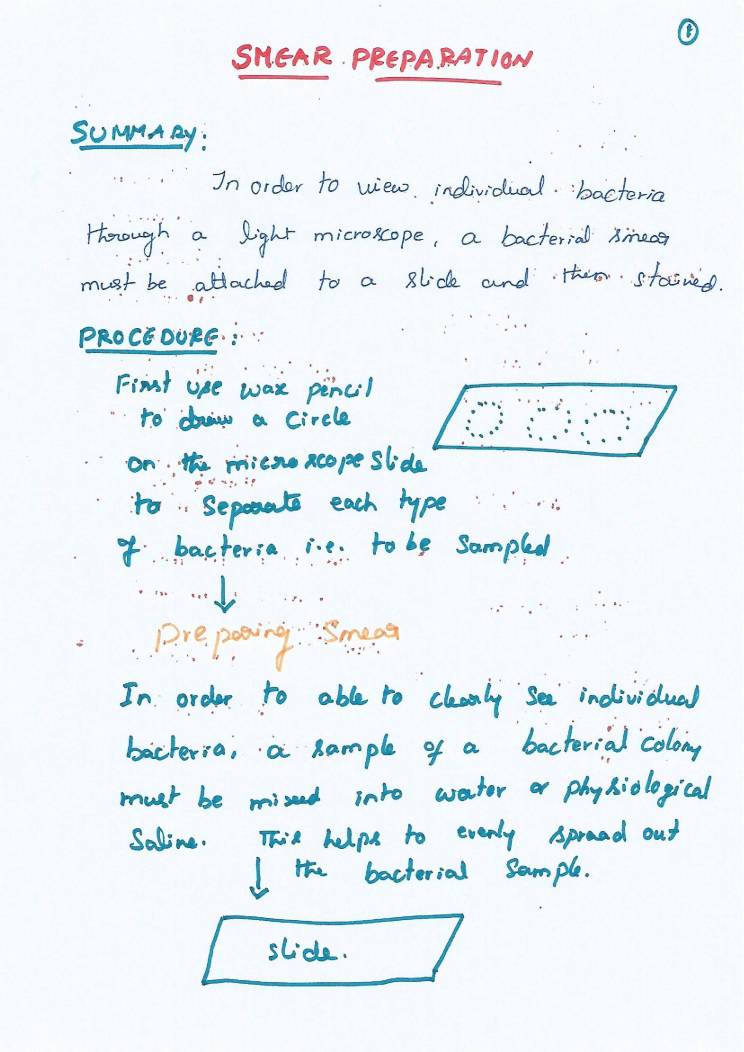 1
SMEAR PREPARATION
SUMMARY:
In order to view individual bacteria
through a light microscope, a bacterial smear
must be attached to a slide and then stained.
PROCEDURE:
First use wax pencil
to draw a circle
on the microscope slide
to separate each type
of bacteria i.e. to be sampled
Preparing Smear
In order to able to clearly see individual
bacteria, a sample of a bacterial colony
must be mixed into water or physiological
Saline. This helps to evenly spread out
the bacterial sample.
slide.